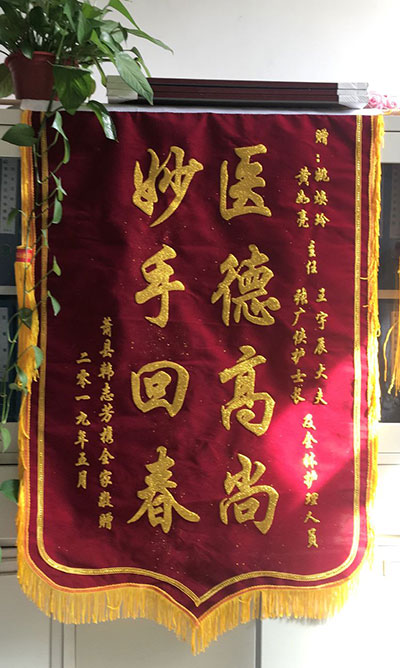 赠：姚焕玲 王宇辰大夫 及全体护理人员
黄如亮 主任 张广侠护士长
医德高尚
妙手回春
萧县韩志芳携全家敬赠
二零一九年五月